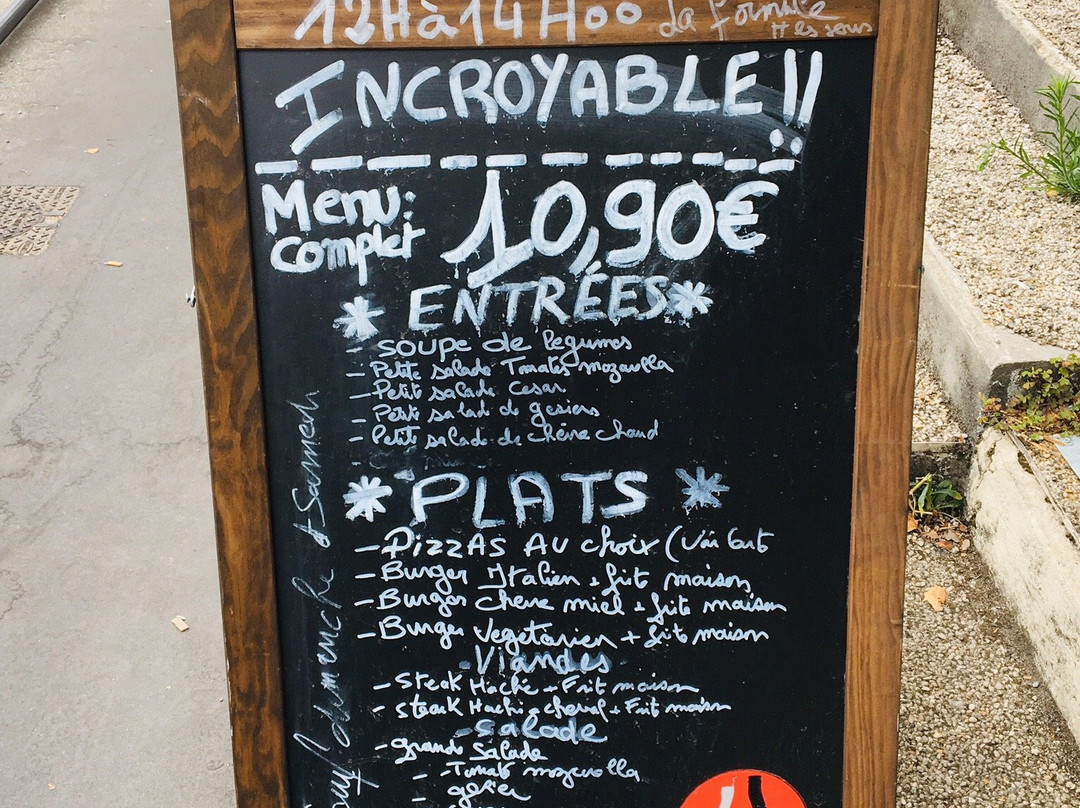 12H à 14H00 la formule
INCROYABLE !!
Menu:
complet
10,90€
* ENTRÉES *
- soupe de legumes
- Petite salade Tomates mozarella
- Petit salade Cesar
- Petit salad de gesiers
- Petite salade de chèvre chaud
* PLATS *
- PizzAs Au choix (voir
- Burger Italien + frit maison
- Burger chevre miel + frits maison
- Burger Vegetarien + frits maison
- Viandes
- Steak Haché + Frit maison
- Steak Haché a cheval + Frit maison
- Salade
- grande Salade
- Tomate mozarella
- gesier
dimanche et Samedi